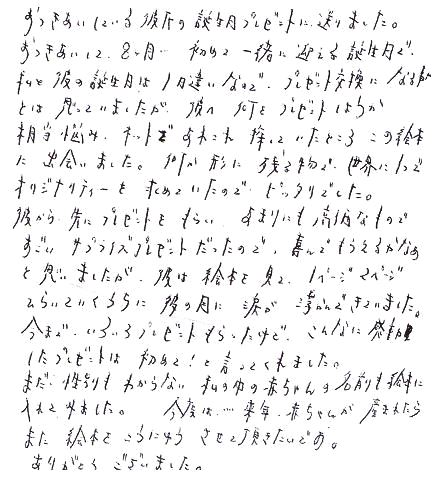 おつきあいしている彼氏の誕生月プレゼントに送りました。
おつきあいして、8ヶ月… 初めて一緒に迎える誕生月で、
私と彼の誕生月は1月違いなので、プレゼント交換になるな
とは思っていましたが、彼へ何をプレゼントしようか
相当悩み、ネットであれこれ捜していたところ この絵本
に出会いました。何か形に残る物で、世界に1つで
オリジナリティーを求めていたので ピッタリでした。
彼から先にプレゼントをもらい あまりにも高価なもので
すごいサプライズプレゼントだったので、喜んでもらえるかなあ
と思いましたが、彼は絵本を見て、1ページ2ページ
ひらいていくうちに彼の目に涙が浮かんできていました。
今まで、いろいろプレゼントもらったけど、こんなに感動
したプレゼントは初めて！と言ってくれました。
まだ性別もわからない私の中の赤ちゃんの名前も絵本に
入れてみました。 今度は…来年、赤ちゃんが産まれたら
また絵本をこうにゅうさせて頂きたいです。
ありがとうございました。